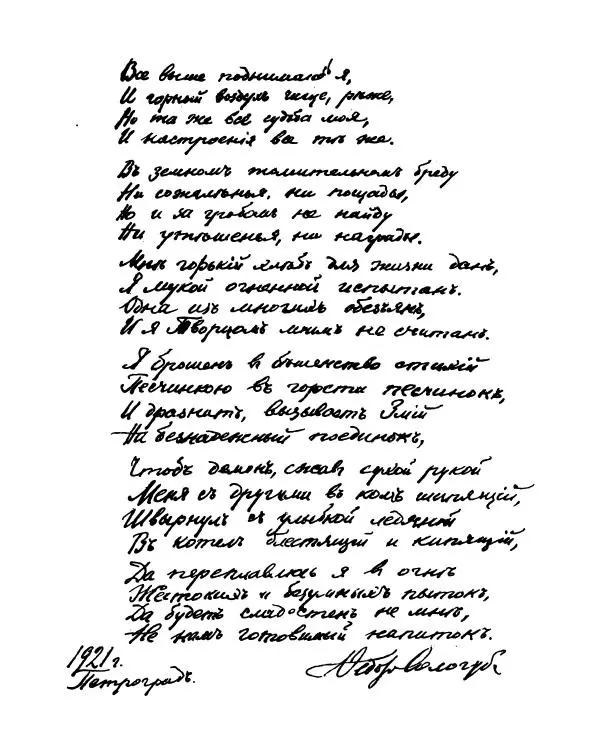 Все выше поднимаюсь я,
И горный воздухъ чище, реже,
Но та же все судьба моя,
И настроенія все те же.
Въ земномъ томительномъ бреду
Ни сожаленья, ни пощады,
Но и за гробомъ не найду
Ни утешенья, ни награды.
Мне горькій хлебъ для жизни данъ,
Я мукой огненной испытанъ.
Одна изъ многихъ обезьянъ,
И я Творцомъ моимъ не считанъ.
Я брошенъ в бешенство стихій
Песчинкою въ горсти песчинокъ,
И дразнитъ, вызываетъ Змій
На безнадежный поединокъ,
Чтобъ демонъ, сжавъ сухой рукой
Меня съ другими въ комъ шипящій,
Швырнулъ съ улыбкой ледяной
Въ котелъ блестящій и кипящій,
Да переплавлюсь я в огне
Жестокихъ и безумныхъ пытокъ,
Да будетъ сладостенъ не мне,
Не намъ готовимый напитокъ.
1921 г.
Петроградъ.
Федор Сологуб